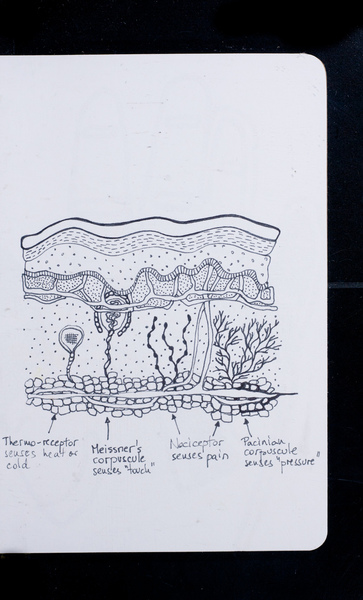 Thermo-receptor
senses heat or
cold
Meissner's
corpuscule
senses "touch"
Nociceptor
senses pain
Pacinian
corpuscule
senses "pressure"